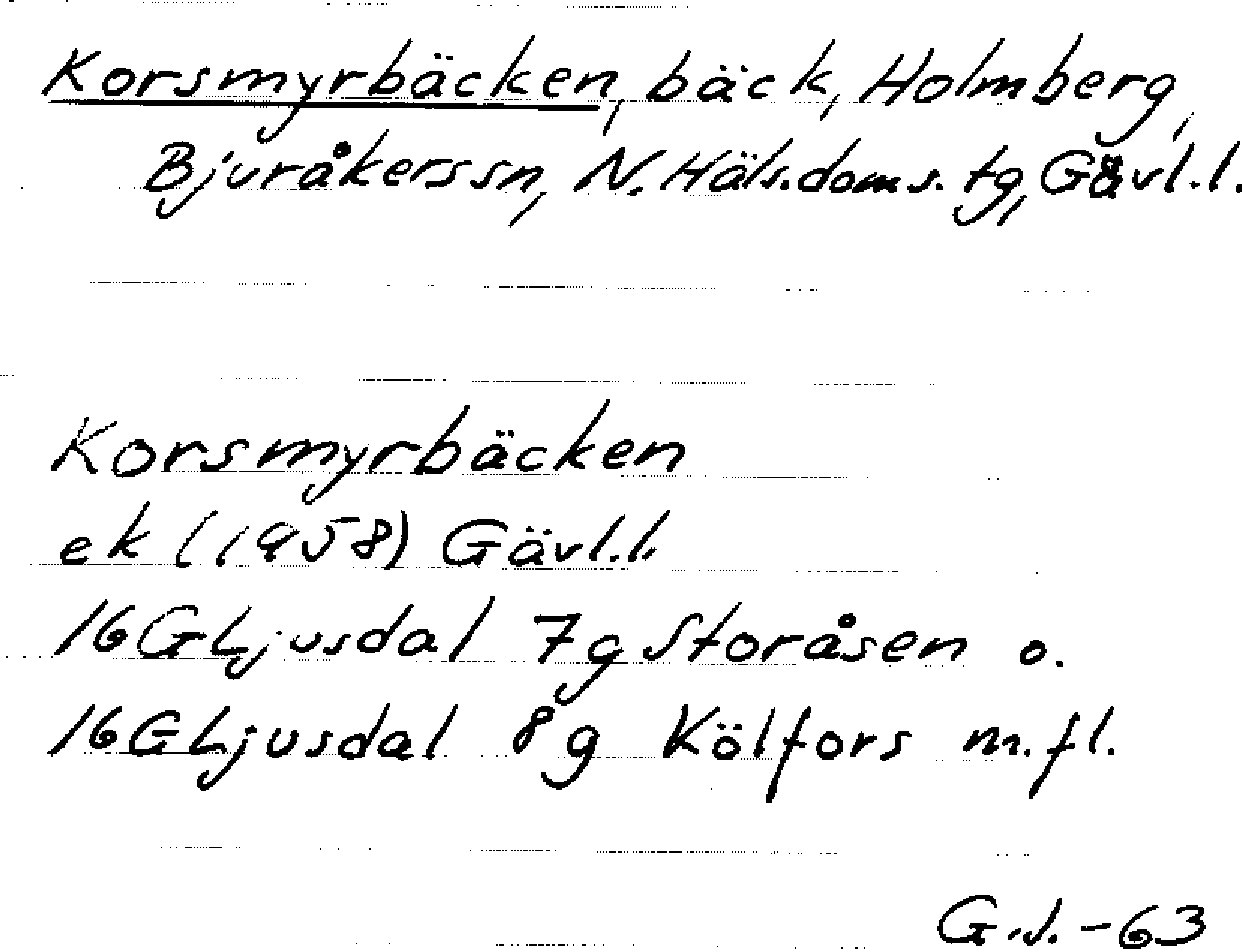 Korsmyrbäcken, bäck, Holmberg,
Bjuråkerssn, N. Häls. doms. tg, Gävl.l.
Korsmyrbäcken
ek (1958) Gävl.l.
16G Ljusdal 7g Storåsen o.
16G Ljusdal 8g Kölfors m.fl.
G.J. -63